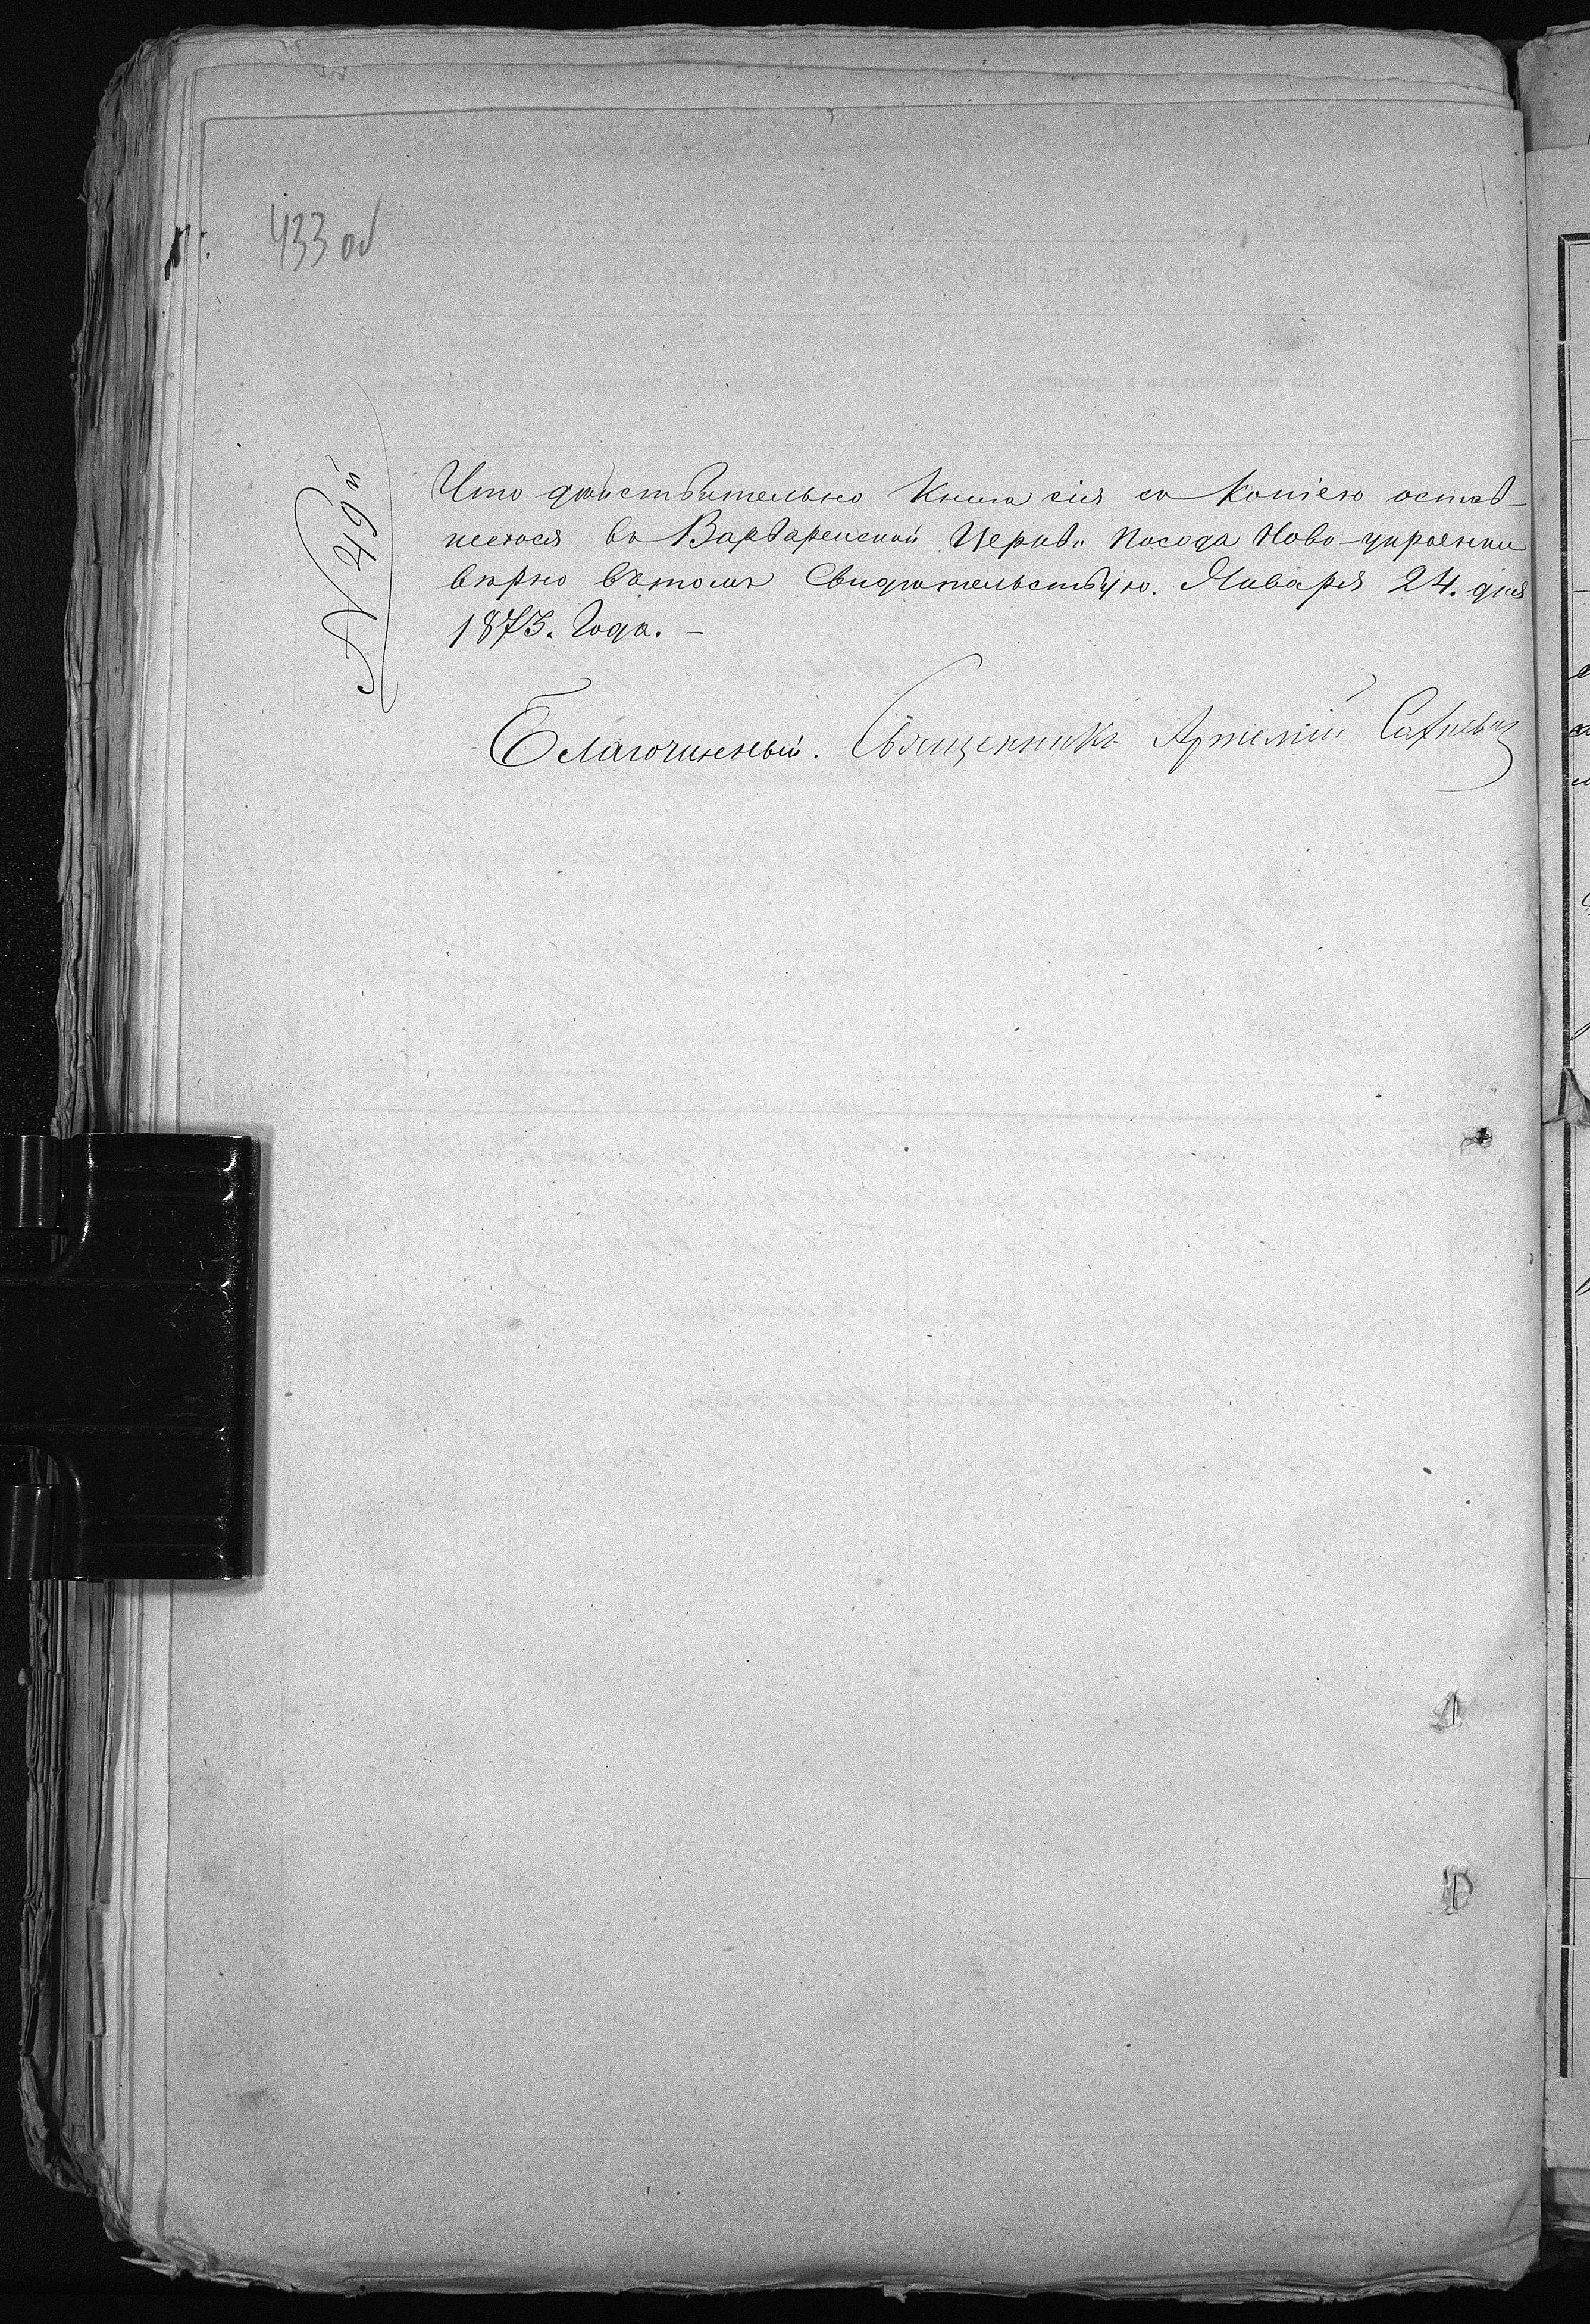 433 об
№ 49й
Что дѣйствительно Книга сія съ Копіею остав-
шеюся въ Варваренской Церкв. посада Ново-украенки
вѣрно вътомъ Свидѣтельствую. Января 24. дня
1873. Года. –
Благочинный. Священникъ Артемій